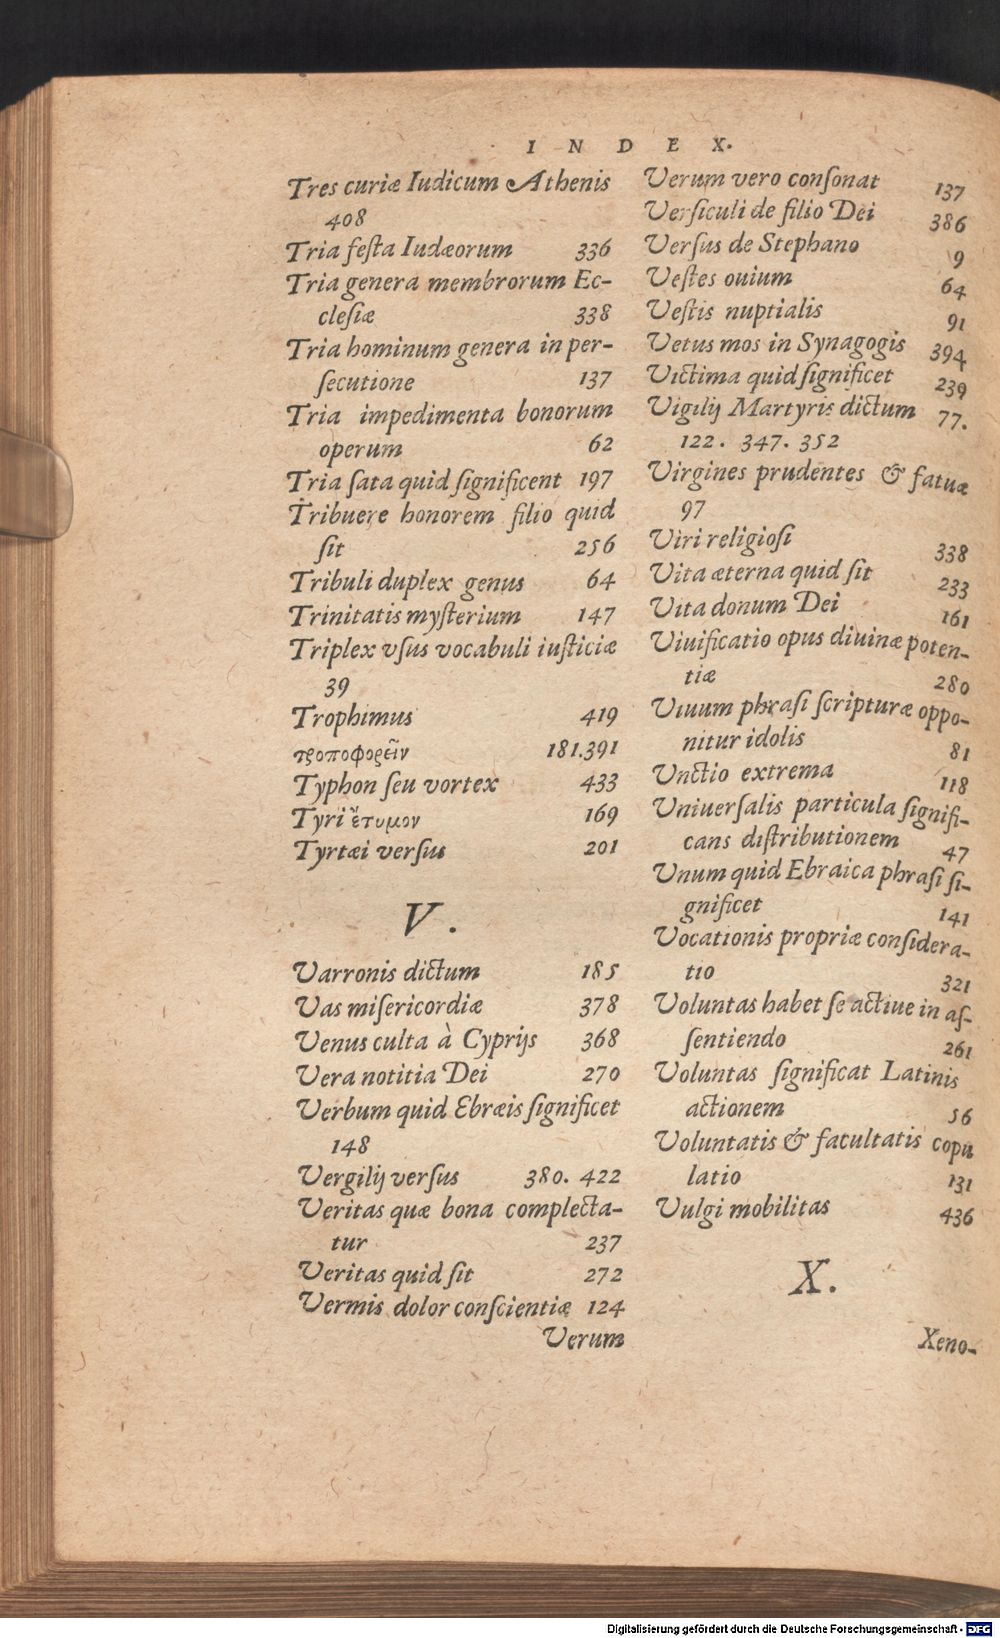 INDEX.
Tres curiæ Iudicum Athenis
408
Tria feſta Iudæorum 336
Tria genera membrorum Ec-
cleſiæ 338
Tria hominum genera in per-
ſecutione 137
Tria impedimenta bonorum
operum 62
Tria ſata quid ſignificent 197
Tribuere honorem filio quid
ſit 256
Tribuli duplex genus 64
Trinitatis myſterium 147
Triplex vſus vocabuli iuſticiæ
39
Trophimus 419
τροποφορεῖν 181.391
Typhon ſeu vortex 433
Tyri ἔτυμον 169
Tyrtæi verſus 201
V.
Varronis dictum 185
Vas miſericordiæ 378
Venus culta à Cyprijs 368
Vera notitia Dei 270
Verbum quid Ebræis ſignificet
148
Vergilij verſus 380. 422
Veritas quæ bona complecta-
tur 237
Veritas quid ſit 272
Vermis dolor conſcientiæ 124
Verum
Verum vero conſonat 137
Verſiculi de filio Dei 386
Verſus de Stephano 9
Veſtes ouium 64
Veſtis nuptialis 91
Vetus mos in Synagogis 394
Victima quid ſignificet 239
Vigilij Martyris dictum 77.
122. 347. 352
Virgines prudentes & fatuæ
97
Viri religioſi 338
Vita æterna quid ſit 233
Vita donum Dei 161
Viuificatio opus diuinæ poten-
tiæ 280
Viuum phraſi ſcripturæ oppo-
nitur idolis 81
Vnctio extrema 118
Vniuerſalis particula ſignifi-
cans diſtributionem 47
Vnum quid Ebraica phraſi ſi-
gnificet 141
Vocationis propriæ conſidera-
tio 321
Voluntas habet ſe actiue in aſ-
ſentiendo 261
Voluntas ſignificat Latinis
actionem 56
Voluntatis & facultatis copu
latio 131
Vulgi mobilitas 436
X.
Xeno-
Digitalisierung gefördert durch die Deutsche Forschungsgemeinschaft - DFG